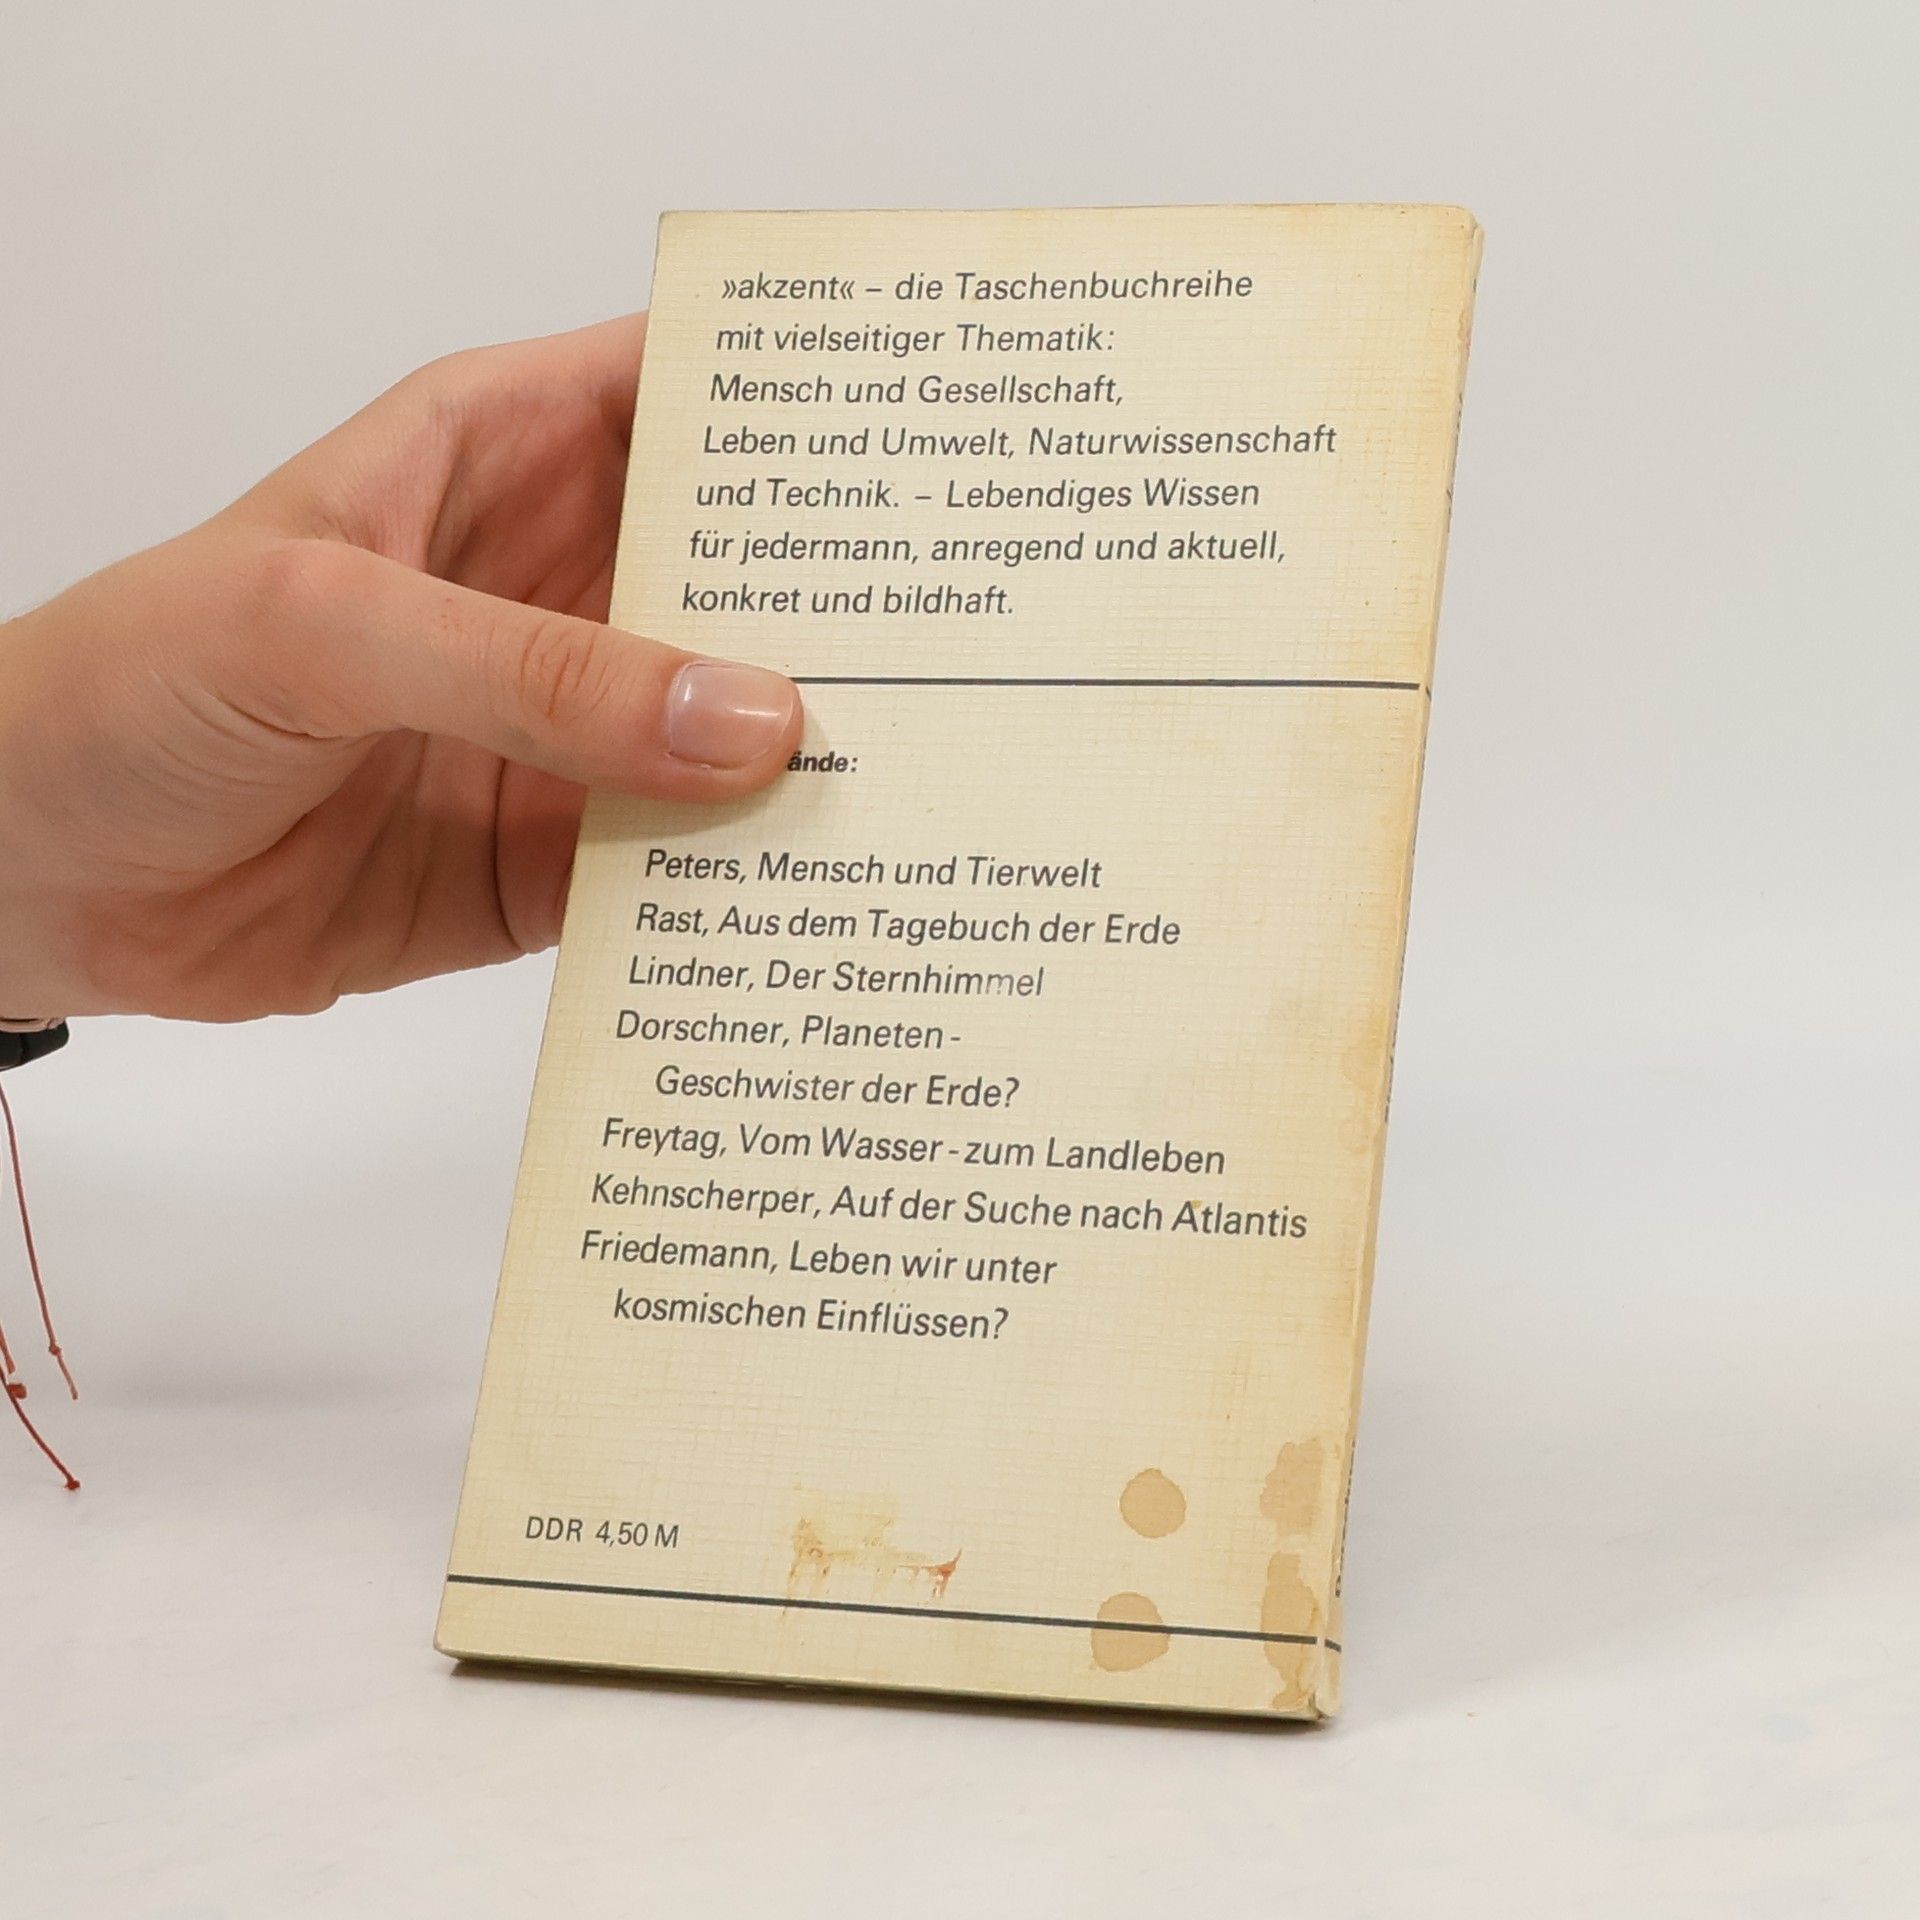 »akzent« – die Taschenbuchreihe
mit vielseitiger Thematik:
Mensch und Gesellschaft,
Leben und Umwelt, Naturwissenschaft
und Technik. – Lebendiges Wissen
für jedermann, anregend und aktuell,
konkret und bildhaft.
ände:
Peters, Mensch und Tierwelt
Rast, Aus dem Tagebuch der Erde
Lindner, Der Sternhimmel
Dorschner, Planeten -
Geschwister der Erde?
Freytag, Vom Wasser - zum Landleben
Kehnscherper, Auf der Suche nach Atlantis
Friedemann, Leben wir unter
kosmischen Einflüssen?
DDR 4,50 M